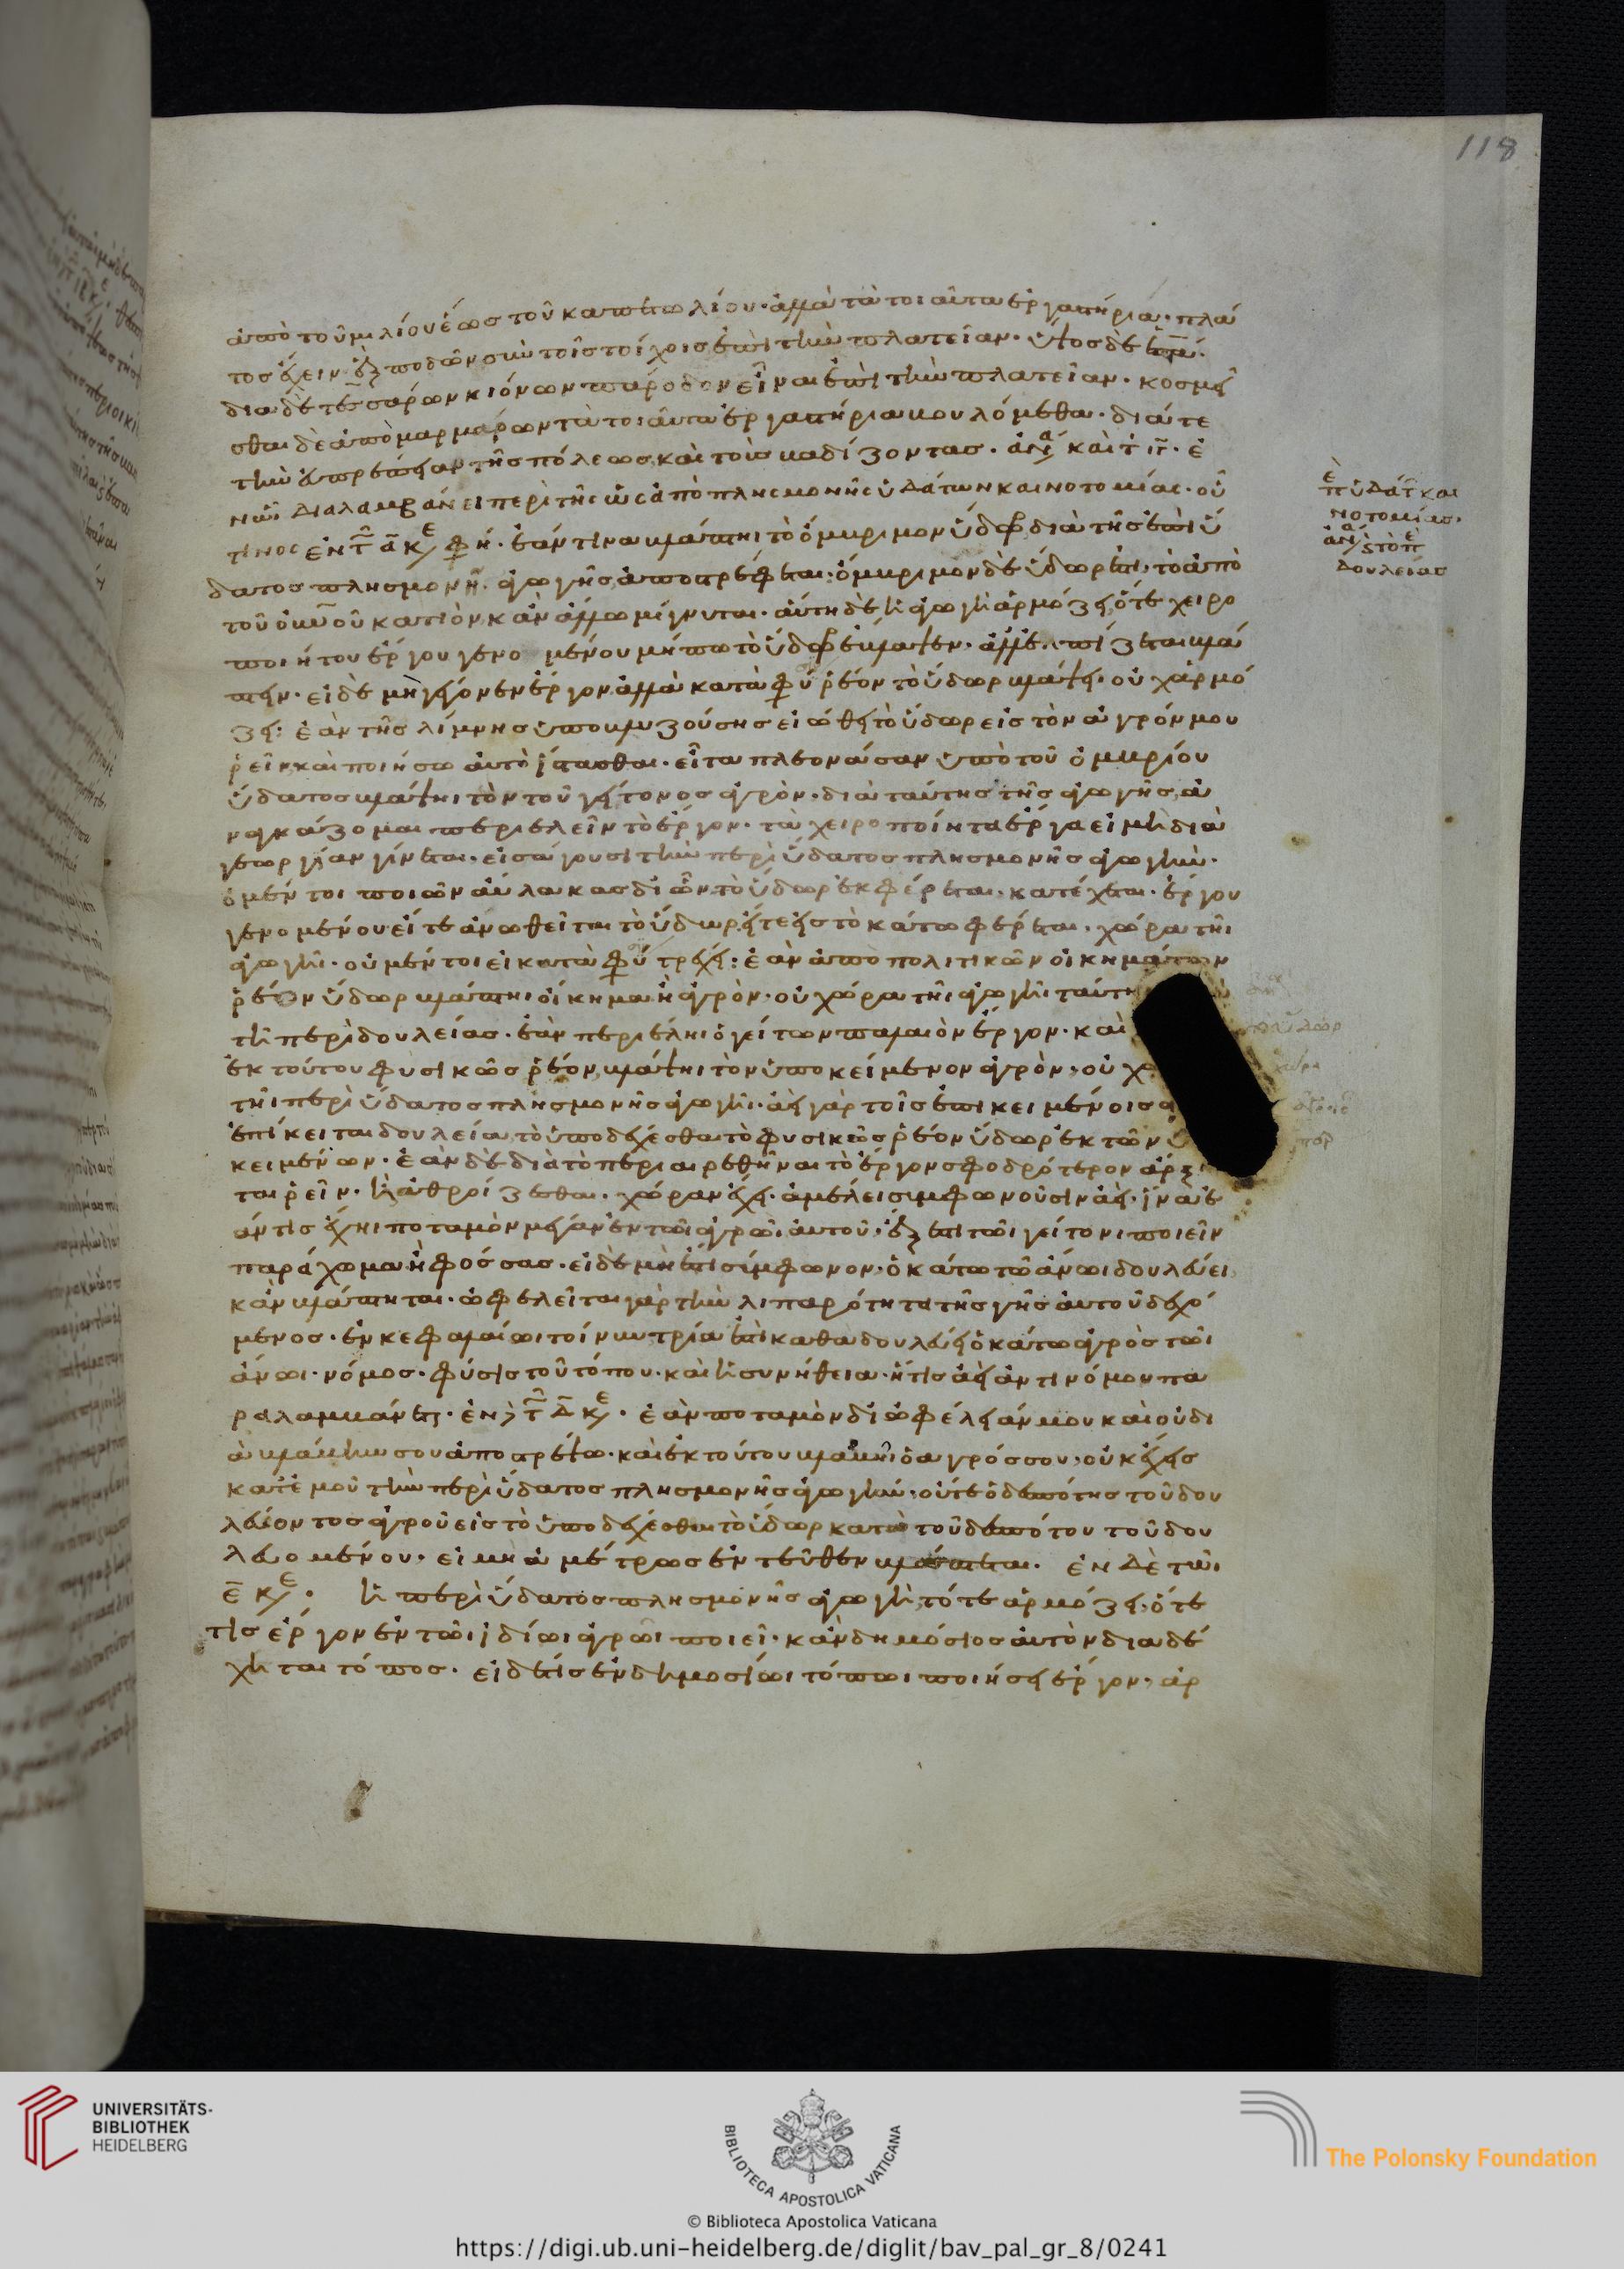 118
ἀπὸ τοῦ μιλίου ἕως τοῦ καπιτωλίου· ἀλλὰ τὰ τοιαῦτα ἐργαστήρια· πλά
τος ἔχειν ποδῶν σὺν τοῖς τοίχοις ἐπὶ τὴν πλατεῖαν· ὕψος δὲ
διὰ δὲ τεσσάρων κιόνων πάροδον εἶναι ἐπὶ τὴν πλατεῖαν· κοσμεῖ
σθαι δὲ ἀπὸ μαρμάρων τὰ τοιαῦτα ἐργαστήρια βουλόμεθα· διά τε
τὴν εὐπρέπειαν τῆς πόλεως καὶ τοὺς βαδίζοντας·
διαλαμβάνει περὶ τῆς ὡς ἀπὸ πλησμονῆς ὑδάτων καινοτομίας· οὗ
τινος ἐάν τινα βλάπτηι τὸ ὄμβριμον ὕδωρ διὰ τῆς ἐπὶ ὕ
δατος πλησμονῆς ἀγωγῆς ἀποστρέφεται· ὄμβριμον δὲ ὕδωρ ἐστὶ, τὸ ἀπὸ
τοῦ οὐνοῦ κατιὸν κἂν ἄλλω μίγνυται· αὕτη δὲ ἡ ἀγωγὴ ἁρμόζει, ὅτε χειρο
ποιήτου ἔργου γενομένου μήπω τὸ ὕδωρ ἔβλαψεν· ἀλλ' ἐλπίζεται βλά
πτειν· εἰ δὲ μὴ γέγονεν ἔργον ἀλλὰ κατὰ φύ ῥέον τὸ ὕδωρ βλάψει· οὐχ ἁρμό
ζει: ἐὰν τῆς λίμνης ὑποβλυζούσης εἰώθει τὸ ὕδωρ εἰς τὸν ἀγρόν μου
ῥεῖν καὶ ποιήσω αὐτὸ ἵστασθαι· εἶτα πλεονάσαν ὑπὸ τοῦ ὀμβρίου
ὕδατος βλάψηι τὸν τοῦ γείτονος ἀγρὸν· διὰ ταύτης τῆς ἀγωγῆς ἀ
ναγκάζομαι περιελεῖν τὸ ἔργον· τὰ χειροποίητα ἔργα εἰ μὴ διὰ
γεωργίαν γίνεται· εἰσάγουσι τὴν περὶ ὕδατος πλησμονῆς ἀγωγήν·
ὁ μέντοι ποιῶν αὔλακας δι' ὧν τὸ ὕδωρ ἐκφέρεται· κατέχεται· ἔργου
γενομένου εἴτε ἀνωθεῖται τὸ ὕδωρ εἴτε εἰς τὸ κάτω φέρεται· χώρα τῆι
ἀγωγῆι· οὐ μέντοι εἰ κατὰ φύ τρέχει: ἐὰν ἀπὸ πολιτικῶν οἰκημάτων
ῥέον ὕδωρ βλάπτηι οἴκημα ἢ ἀγρὸν· οὐ χώρα τῆι ἀγωγῆι ταύτη
τῆ περὶ δουλείας· ἐὰν περιέληι ὁ γείτων παλαιὸν ἔργον· καὶ
ἐκ τούτου φυσικῶς ῥέον βλάψηι τὸν ὑποκείμενον ἀγρὸν· οὐ χ
τῆι περὶ ὕδατος πλησμονῆς ἀγωγῆι· ἀεὶ γὰρ τοῖς ἐπικειμένοις
ἐπίκειται δουλεία τὸ ὑποδέχεσθαι τὸ φυσικῶς ῥέον ὕδωρ ἐκ τῶν ὑ
κειμένων· ἐὰν δὲ διὰ τὸ περιαιρεθῆναι τὸ ἔργον σφοδρότερον ἄρξη
ται ῥεῖν· ἢ ἀθροίζεσθαι· χώραν ἔχει· ἀμέλει συμφωνοῦσιν ἀεὶ· ἵνα ἐ
άν τις ἔχηι ποταμὸν μέγαν ἐν τῶι ἀγρῶι αὐτοῦ· τῶι γείτονι ποιεῖν
παράχωμα ἢ φόσσας· εἰ δὲ μή ἐστι σύμφωνον· ὁ κάτω τῶ ἄνωι δουλεύει
κἂν βλάπτηται· ὠφελεῖται γὰρ τὴν λιπαρότητα τῆς γῆς αὐτοῦ δεχό
μενος· ἐν κεφαλαίωι τοίνυν τρία ἐστὶ καθὰ δουλεύει ὁ κάτω ἀγρὸς τῶι
ἄνωι· νόμος· φύσις τοῦ τόπου· καὶ ἡ συνήθεια· ἥτις ἀεὶ ἀντὶ νόμου πα
ραλαμβάνεται· ἐὰν ποταμὸν δι' ὠφέλειάν μου καὶ οὐ δι
ὰ βλάβην σου ἀποστρέψω· καὶ ἐκ τούτου βλαβῆι ὁ ἀγρός σου· οὐκ ἔχεις
κατ' ἐμοῦ τὴν περὶ ὕδατος πλησμονῆς ἀγωγήν· οὔτε ὁ δεσπότης τοῦ δου
λεύοντος ἀγροῦ εἰς τὸ ὑποδέχεσθαι τὸ ὕδωρ κατὰ τοῦ δεσπότου τοῦ δου
λευομένου· εἰ μὴ ἀμέτρως ἐντεῦθεν βλάπτεται· ἐν δὲ τῶι
ε̄ κε· ἡ περὶ ὕδατος πλησμονῆς ἀγωγὴ, τότε ἁρμόζει, ὅτε
τὶς ἔργον ἐν τῶι ἰδίωι ἀγρῶι ποιεῖ· κἂν δημόσιος αὐτὸν διαδέ
χηται τόπος· εἰ δέ τις ἐν δημοσίωι τόπωι ποιήσει ἔργον, ἁρ
π ὑδάτ και
νοτομίας·
δουλείας
UNIVERSITÄTS-
BIBLIOTHEK
HEIDELBERG
BIBLIOTECA APOSTOLICA VATICANA
The Polonsky Foundation
© Biblioteca Apostolica Vaticana
https://digi.ub.uni-heidelberg.de/diglit/bav_pal_gr_8/0241